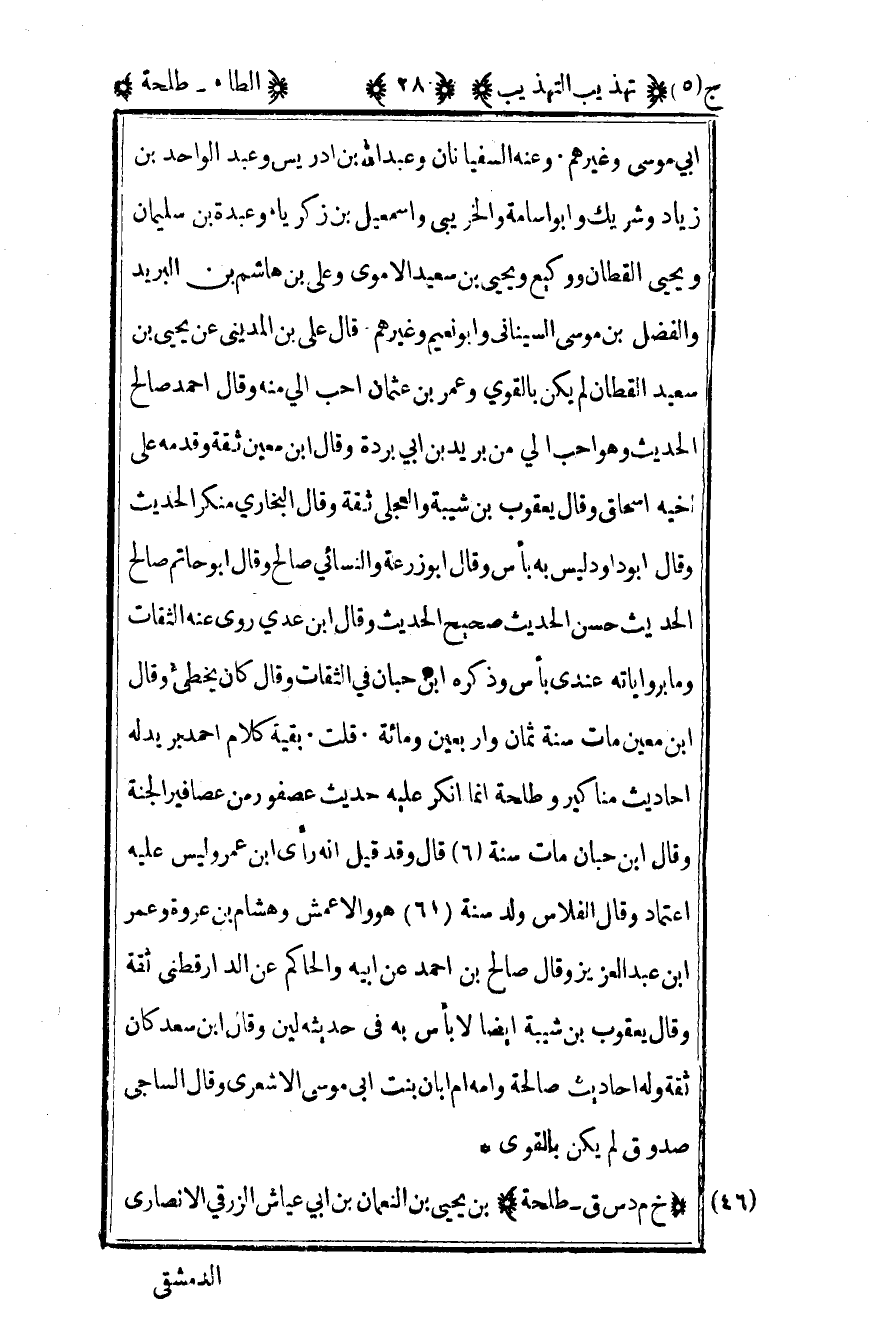 ج (٥) تهذيب التهذيب ٢٨٠ الطاء ـ طلحة
ابي موسى وغيرهم ٠ وعنه السفيانان وعبدالله بن ادريس وعبد الواحد بن
زياد وشريك وابواسامة والخريبى واسمعيل بن زكرياء وعبدة بن سليمان
ويحيى القطان ووكيع ويحيى بن سعيد الاموى وعلى بن هاشم بن البريد
والفضل بن موسى السينانى وابونعيم وغيرهم ٠ قال على بن المدينى عن يحيى بن
سعيد القطان لم يكن بالقوي وعمر بن عثمان احب الي منه وقال احمد صالح
الحديث وهو احب الي من بريد بن ابي بردة وقال ابن معين ثقة وقدمه على
اخيه اسحاق وقال يعقوب بن شيبة والعجلى ثقة وقال البخاري منكر الحديث
وقال ابوداود ليس به بأس وقال ابوزرعة والنسائي صالح وقال ابوحاتم صالح
الحديث حسن الحديث صحيح الحديث وقال ابن عدي روى عنه الثقات
وما برواياته عندى بأس وذكره ابن حبان في الثقات وقال كان يخطئ وقال
ابن معين مات سنة ثمان واربعين ومائة ٠ قلت ٠ بقية كلام احمد بريد له
احاديث مناكير وطلحة انما انكر عليه حديث عصفور من عصافير الجنة
وقال ابن حبان مات سنة (٦) قال وقد قيل انه رأى ابن عمر وليس عليه
اعتماد وقال الفلاس ولد سنة (٦١) هو والاعمش وهشام بن عروة وعمر
ابن عبدالعزيز وقال صالح بن احمد عن ابيه والحاكم عن الدارقطنى ثقة
وقال يعقوب بن شيبة ايضا لا بأس به فى حديثه لين وقال ابن سعد كان
ثقة وله احاديث صالحة وامه ام ابان بنت ابى موسى الاشعرى وقال الساجى
صدوق لم يكن بالقوى *
(٤٦) خ م د س ق ـ طلحة بن يحيى بن النعمان بن ابي عياش الزرقي الانصارى
الدمشقى